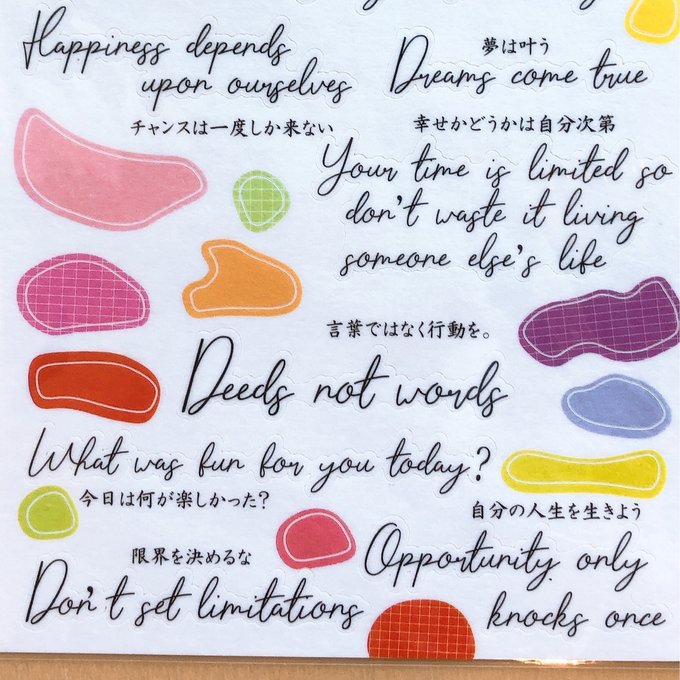 Happiness depends
upon ourselves
夢は叶う
Dreams come true
チャンスは一度しか来ない
幸せかどうかは自分次第
Your time is limited so
don't waste it living
someone else's life
言葉ではなく行動を。
Deeds not words
What was fun for you today?
今日は何が楽しかった?
自分の人生を生きよう
限界を決めるな
Opportunity only
knocks once
Don't set limitations